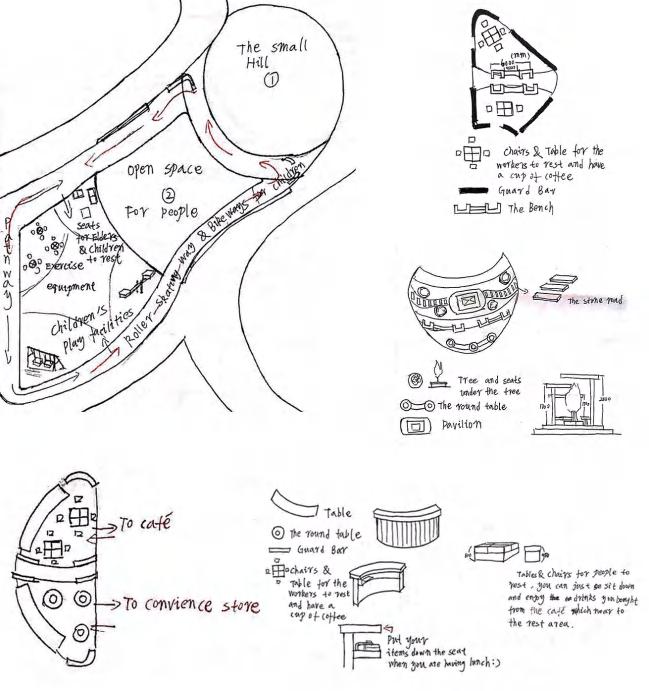 The small
Hill
①
Open space
②
For people
Pathway
seats
for Elders
& Children
to rest
Exercise
equipment
Children's
play facilities
Roller-skating-way & Bikeways for children
(mm)
chairs & Table for the
workers to rest and have
a cup of coffee
Guard Bar
The Bench
The stone road
Tree and seats
under the tree
The round table
Pavilion
To café
To convience store
Table
The round table
Guard Bar
chairs &
Table for the
workers to rest
and have a
cup of coffee
Put your
items down the seat
when you are having lunch:)
Tables & chairs for people to
rest, you can just sit down
and enjoy the drinks you bought
from the café which near to
the rest area.